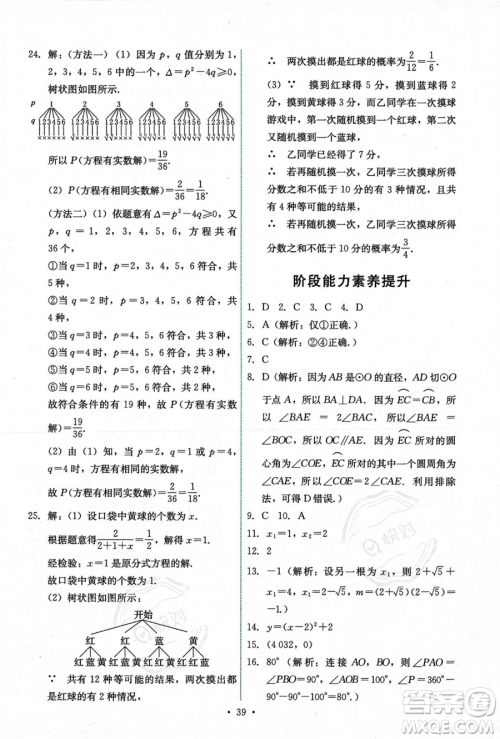 24. 解：(方法一) (1) 因为 p，q 值分别为 1，
2，3，4，5，6 中的数，Δ=p²－4q⩾0，
树状图如图所示.
p 1 2 3 4 5 6
q 123456 123456 123456 123456 123456 123456
所以 P (方程有实数解)=19/36.
(2) P (方程有相同实数解)=2/36=1/18.
(方法二) (1) 依题意有 Δ=p²－4q⩾0，共有
36 个，
①当 q=1 时，p=2，3，4，5，6 符合，共 5
种，
②当 q=2 时，p=3，4，5，6 符合，共 4 种，
③当 q=3 时，p=4，5，6 符合，共 3 种，
④当 q=4 时，p=4，5，6 符合，共 3 种，
⑤当 q=5 时，p=5，6 符合，共 2 种，
⑥当 q=6 时，p=5，6 符合，共 2 种，
故符合条件的有 19 种，故 P (方程有实数
解)=19/36.
(2) 由 (1) 知，当 q=1 时，p=2；当 q=4
时，p=4，故 P (方程有相同实数解)=2/36=1/18.
25. 解：(1) 设口袋中黄球的个数为 x.
根据题意得 2/(2+1+x)=1/2，解得 x=1.
经检验，x=1 是原分式方程的解.
故口袋中黄球的个数为 1.
(2) 树状图如图所示.
开始
红 红 蓝 黄
红 蓝 黄 红 蓝 黄 红 红 黄 红 红 蓝
∵ 共有 12 种等可能的结果，两次摸出都
是红球的有 2 种情况，
∴ 两次摸出都是红球的概率为 2/12=1/6.
(3) ∵ 摸到红球得 5 分，摸到蓝球得 2
分，摸到黄球得 3 分，而乙同学在一次摸球
游戏中，第一次随机摸到一个红球，第二次
又随机摸到一个蓝球，
∴ 乙同学已经得了 7 分，
∴ 若再随机摸一次，乙同学三次摸球所得
分数之和不低于 10 分的有 3 种情况，且共
有 4 种等可能的结果，
∴ 若再随机摸一次，乙同学三次摸球所得
分数之和不低于 10 分的概率为 3/4.
阶段能力素养提升
1. D 2. C 3. C 4. D
5. A (解析：仅①正确.)
6. C (解析：②④正确.)
7. C
8. D (解析：因为 BA 是⊙O 的直径，AD 切⊙O
于点 A，所以 BA⊥DA. 因为 EC=CB，所
以 ∠BAE=2∠CAE，∠BAE=∠EOC=
∠BOC，OC∥AE. 因为 EC 所对的圆
心角为∠COE，EC 所对的一个圆周角为
∠CAE，所以∠COE=2∠CAE. 利用排除
法，可得 D 错误.)
9. C 10. A
11. x₁=1，x₂=2
12. 2
13. －1 (解析：设另一个根为 x₁，则 2+√5+
x₁=4，x₁=2－√5，所以 c=(2+√5)×
(2－√5)=－1.)
14. y=(x－2)²+2
15. (4 032，0)
16. 80° (解析：连接 AO，BO，则 ∠PAO=
∠PBO=90°，∠AOB=100°，∠P=360°－
90°－90°－100°=80°.)
· 39 ·